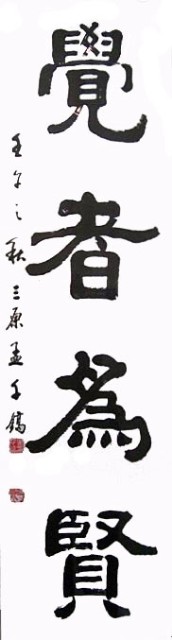 覺者為賢
壬午之秋三原孟千鎬